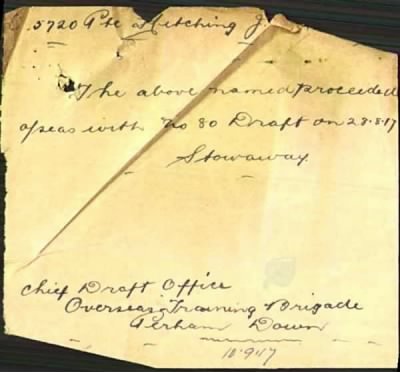 5720 Pte Hitching J.
The above named proceeded
o/seas with No 80 Draft on 28.8.17
Stowaway
Chief Draft Office
Overseas Training Brigade
Perham Down
10.9.17